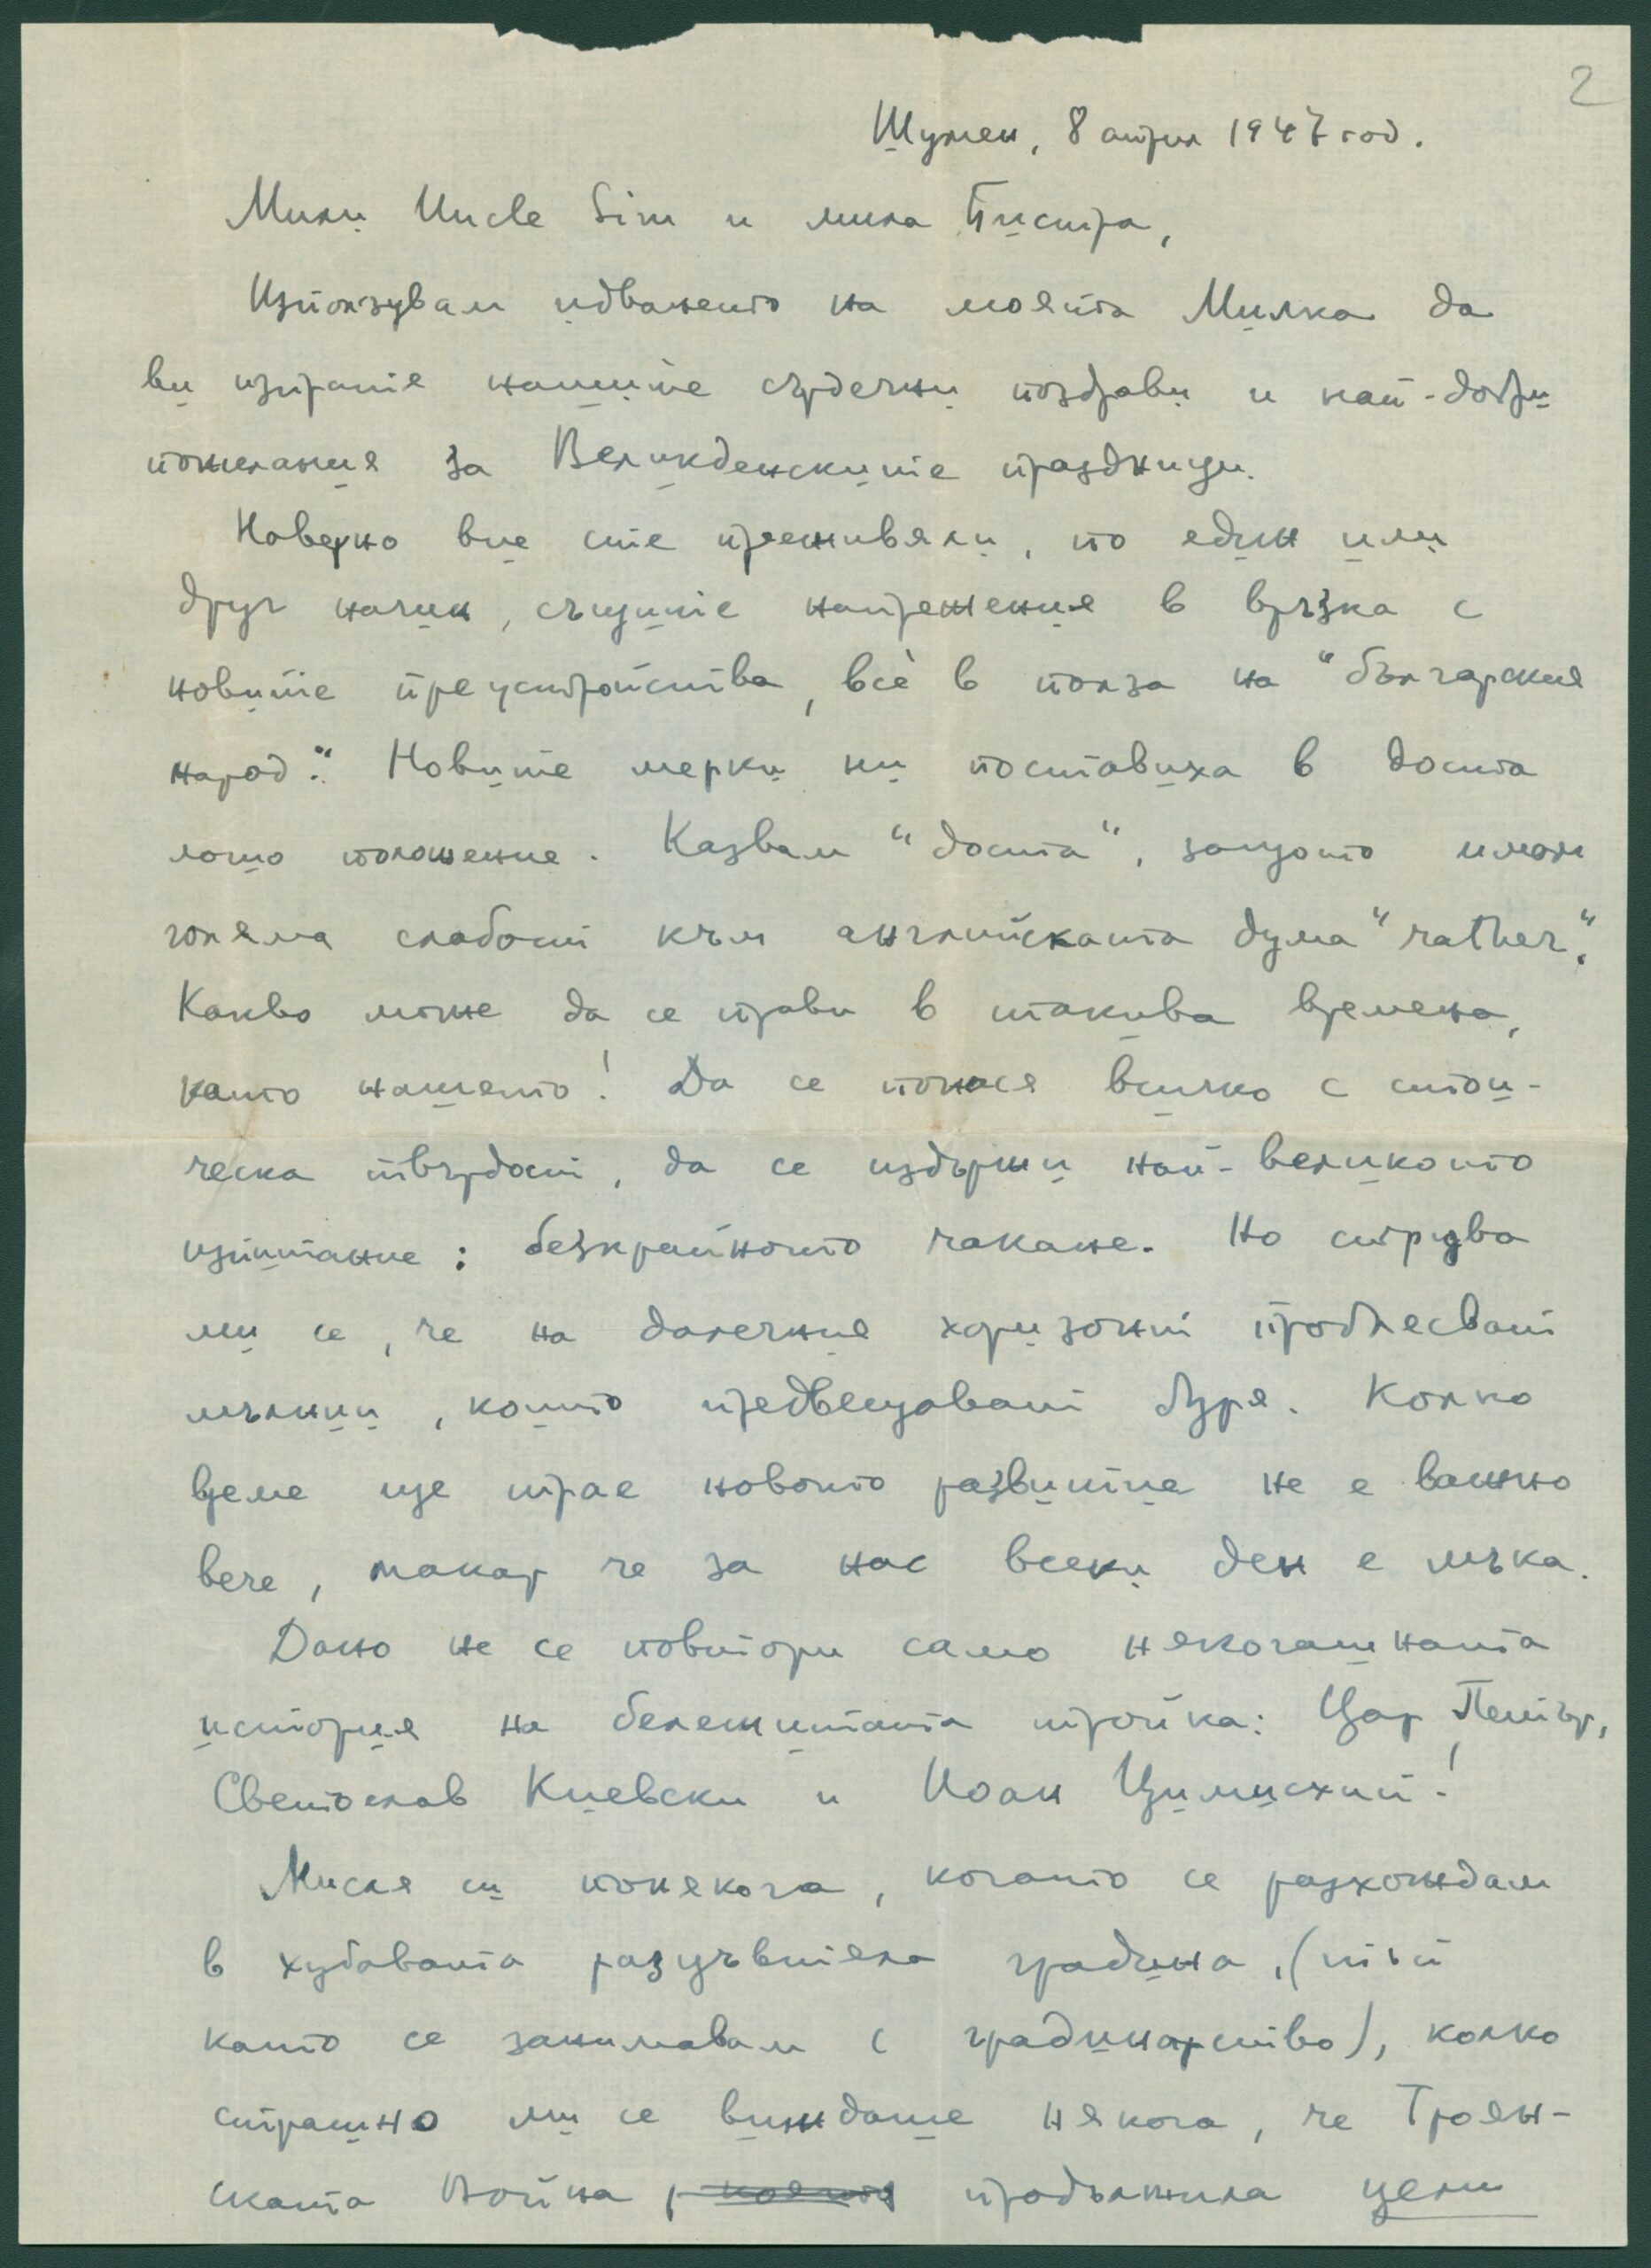 2
Шумен, 8 април 1947 год.
Мили Uncle Sim и мила Пистра,
Използувам идването на моята Милка да
ви изпратя нашите сърдечни поздрави и най-добри
пожелания за Великденските праздници.
Наверно вие сте преживяли, по един или
друг начин, същите напрежения в връзка с
новите преустройства, всѐ в полза на "българския
народ". Новите мерки ни поставиха в доста
лошо положение. Казвам "доста", защото имам
голяма слабост към английската дума "rather".
Какво може да се прави в такива времена,
като нашето! Да се понася всичко с стои-
ческа твърдост, да се издържи най-великото
изпитание: безкрайното чакане. Но струва
ми се, че на далечния хоризонт проблесват
мълнии, които предвещават буря. Колко
време ще трае новото развитие не е важно
вече, макар че за нас всеки ден е мъка.
Дано не се повтори само някогашната
история на бележитата тройка: Цар Петър,
Светослав Киевски и Иоан Цимисхий!
Мисля си понякога, когато се разхождам
в хубавата разцъвтяла градина, (тъй
като се занимавам с градинарство), колко
страшно ми се виждаше някога, че Троян-
ската Война, която продължила цели